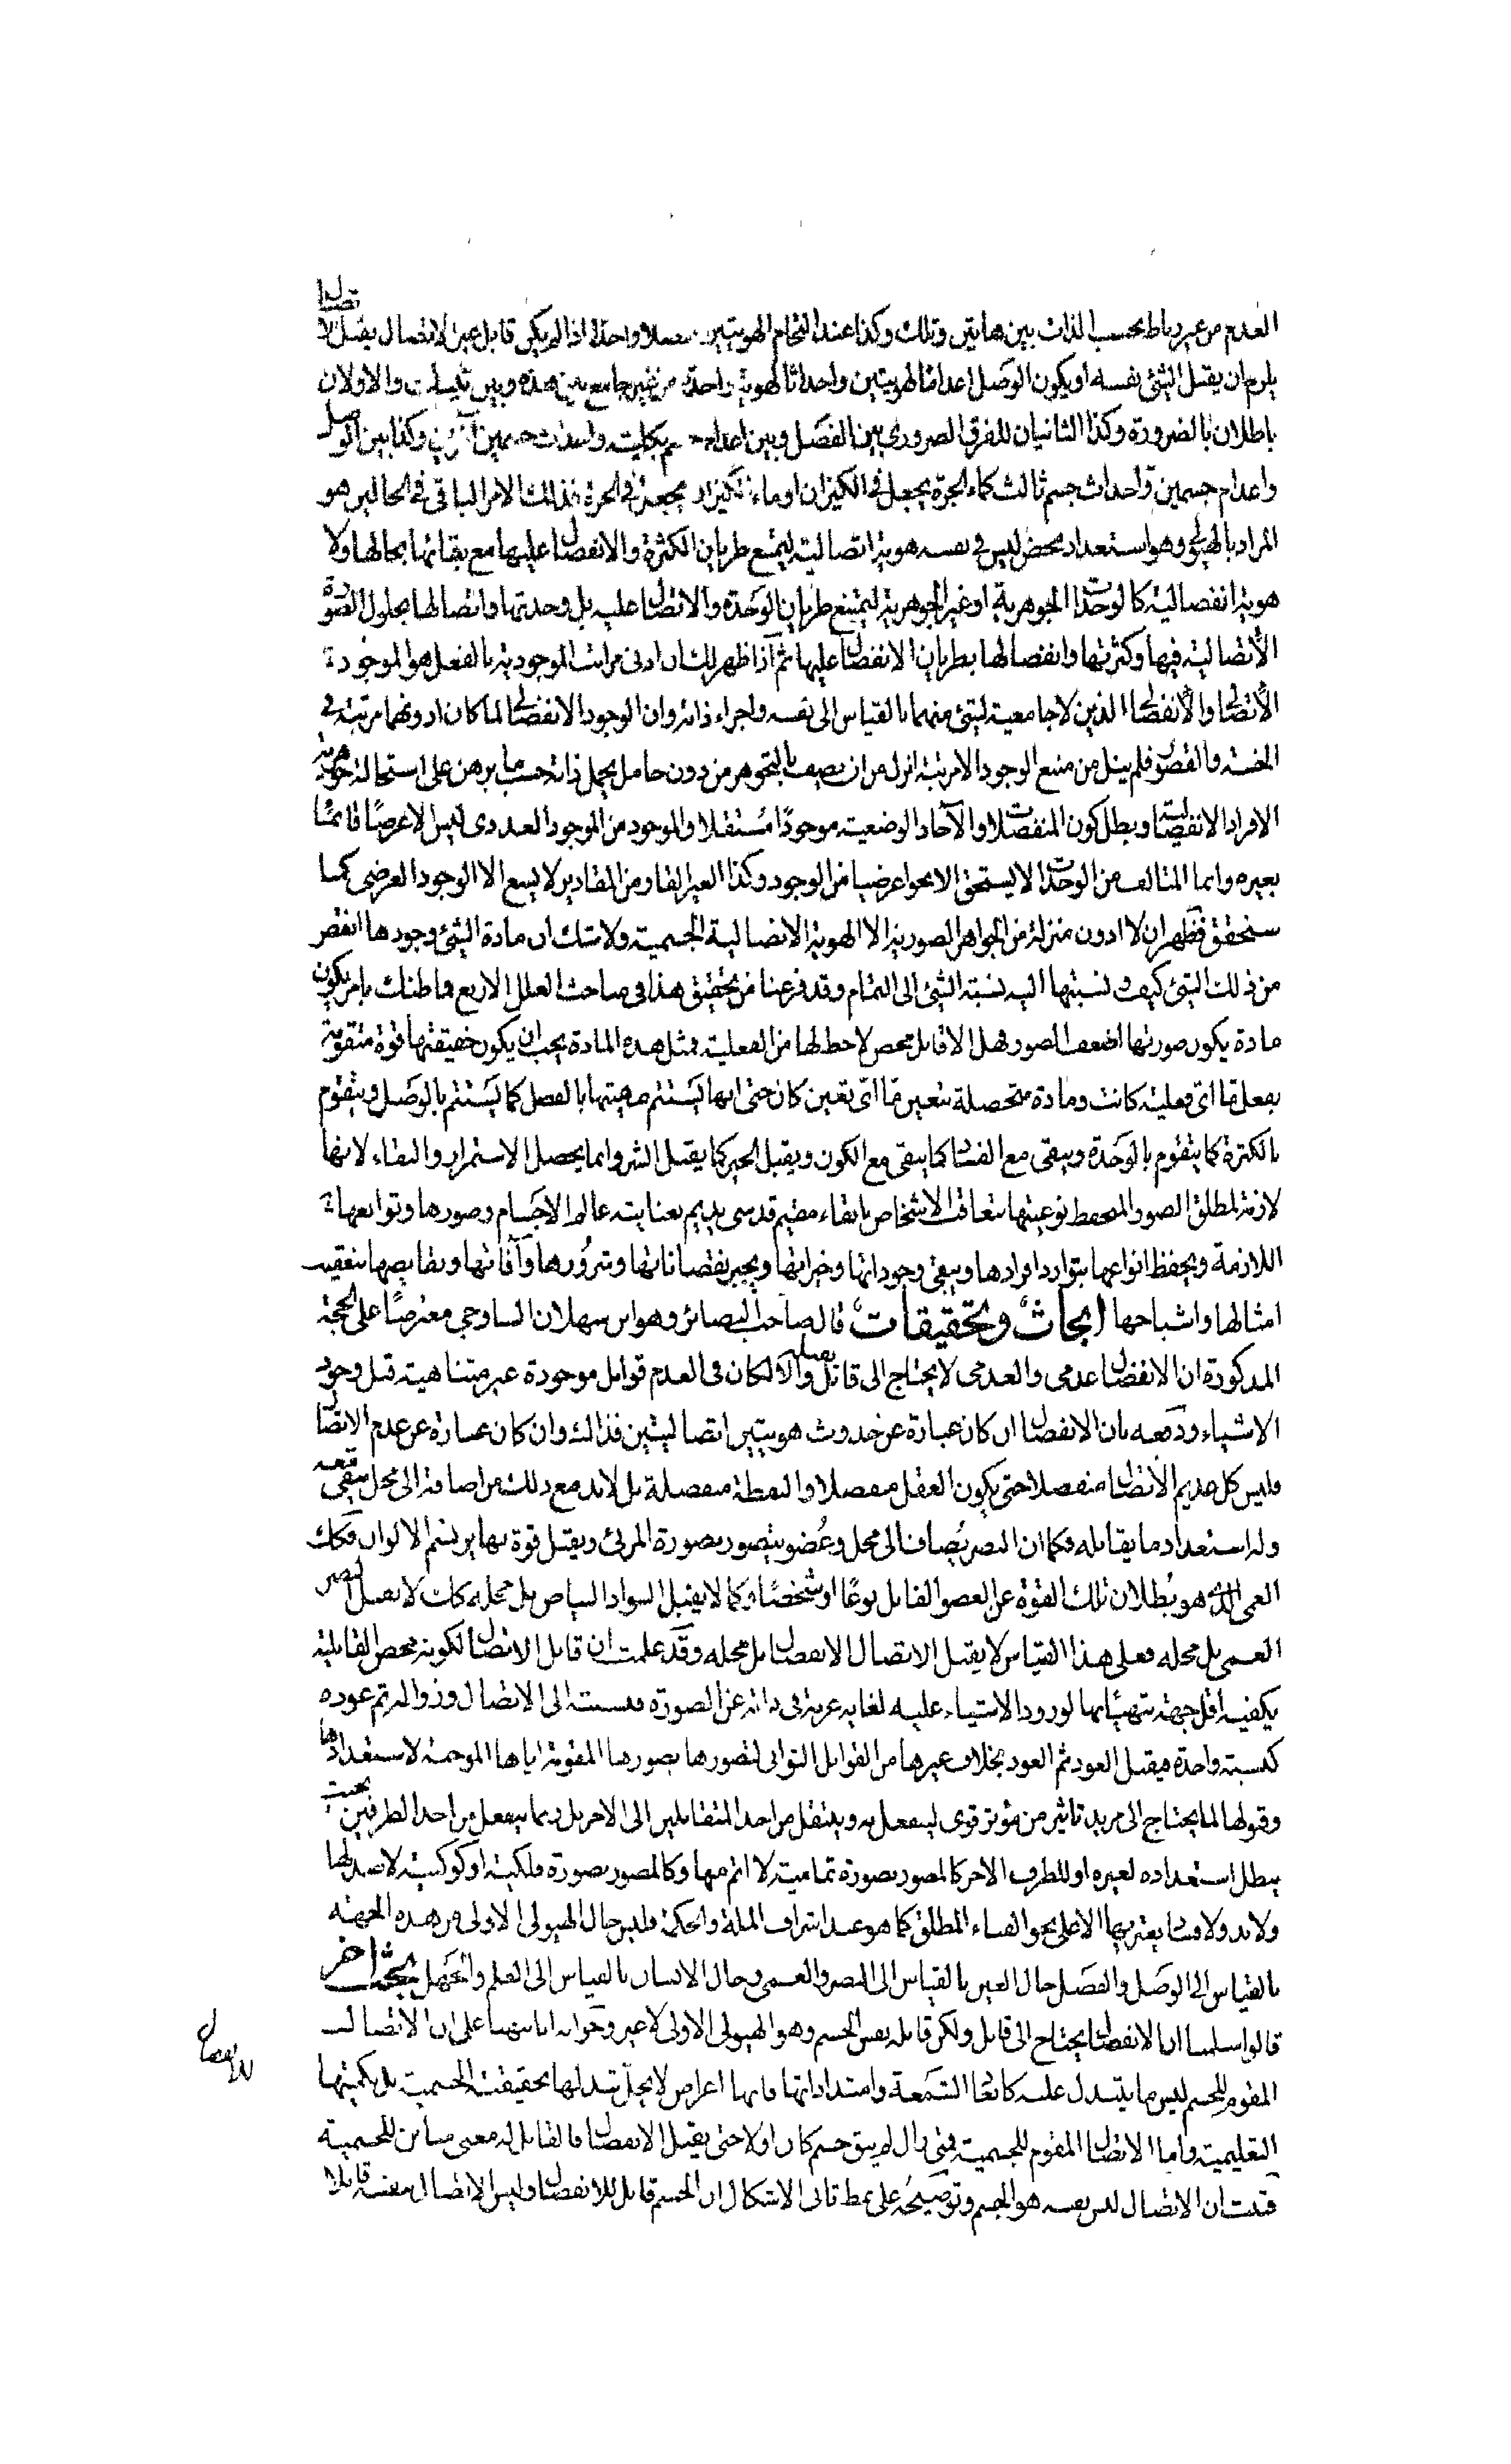 العدم من غير رباط بحسب الذات بين هاتين وتلك وكذا عند التحام الهويتين متصلا واحدا اذا لم يكن قابل عين الاتصال يقبل الاتصال
يلزم ان يقبل الشئ نفسه او يكون الوصل اعداما لهويتين واحداثا لهوية واحدة من غير جامع بين هذه وبين تينك والاولان
باطلان بالضرورة وكذا الثانيان للفرق الضروري بين الفصل وبين اعدام جسم بكليته واحداث جسمين آخرين وكذا بين الوصل
واعدام جسمين واحداث جسم ثالث كماء الجرة يجعل في الكيزان او ماء الكيزان يجعل في الجرة فذلك الامر الباقي في الحالين هو
المراد بالهيولى وهو استعداد محض ليس في نفسه هوية اتصالية ليمتنع طريان الكثرة والانفصال عليها مع بقائها بحالها ولا
هوية انفصالية كالوحدات الجوهرية او غير الجوهرية ليمتنع طريان الوحدة والاتصال عليه بل وحدتها واتصالها بحلول الصورة
الاتصالية فيها وكثرتها وانفصالها بطريان الانفصال عليها ثم اذا ظهر لك ان ادنى مراتب الموجودية بالفعل هو الموجود
الاتصالى والانفصالى الذين لا جامعية لشئ منهما بالقياس الى نفسه واجزاء ذاته وان الوجود الانفصالى لما كان ادونهما مرتبة في
الخسة والقصور فلم ينل من منبع الوجود الا مرتبة انزل من ان يصف بالتجوهر من دون حامل يحمل ذاته حسب ما برهن على استحالة جوهرية
الافراد الانفصالية وبطل كون المنفصلات والآحاد الوضعية موجودا مستقلا والموجود من الموجود العددي ليس الا عرضا قائما
بغيره وانما المتالف من الوحدات لا يستحق الا نحوا عرضيا من الوجود وكذا الغير القار من المقادير لا يسع الا الوجود العرضي كما
سنحقق فظهر ان لا ادون منزلة من الجواهر الصورية الا الهوية الاتصالية الجسمية ولا شك ان مادة الشئ وجودها انقص
من ذلك الشئ كيف ونسبتها اليه نسبة الشئ الى التمام وقد فرغنا من تحقيق هذا في مباحث العلل الاربع فما ظنك بامر يكون
مادة يكون صورتها اضعف الصور فهل الا قابل محض لا حظ لها من الفعلية فمثل هذه المادة يجب ان يكون حقيقتها قوة متقومة
بفعل ما اى فعلية كانت ومادة متحصلة بتعين ما اى تعين كان حتى انها يستتم مهيتها بالفصل كما يستتم بالوصل ويتقوم
بالكثرة كما يتقوم بالوحدة ويبقى مع الفساد كما يبقى مع الكون ويقبل الخير كما يقبل الشر وانما يحصل الاستمرار والبقاء لانها
لازمة لمطلق الصور المنحفظ نوعيتها بتعاقب الاشخاص بابقاء مقيم قدسى يديم بعنايته عالم الاجسام وصورها وتوابعها
اللازمة ويحفظ انواعها بتوارد افرادها ويبقى وجوداتها وخيراتها ويجبر نقصاناتها وشرورها وآفاتها ونقايصها بتعقيب
امثالها واشباحها ابحاث وتحقيقات قال صاحب البصائر وهو ابن سهلان الساوجي معترضا على الحجة
المذكورة ان الانفصال عدمى والعدمى لا يحتاج الى قابل يقبله والا لكان في العدم قوابل موجودة غير متناهية قبل وجود
الاشياء ودفعه بان الانفصال ان كان عبارة عن حدوث هويتين اتصاليتين فذاك وان كان عبارة عن عدم الاتصال
فليس كل عديم الاتصال منفصلا حتى يكون العقل منفصلا والنقطة منفصلة بل لابد مع ذلك من اضافة الى محل يبقى معه
وله استعداد ما يقابله فكما ان البصر يضاف الى محل وعضو يتصور بصورة المرئى ويقبل قوة بها يرتسم الالوان فكذلك
العمى الذي هو بطلان تلك القوة عن العضو القابل نوعا او شخصا وكما لا يقبل السواد البياض بل محله كذلك لا يقبل البصر
العمى بل محله فعلى هذا القياس لا يقبل الاتصال الانفصال بل محله وقد علمت ان قابل الاتصال لكونه محض القابلية
يكفيه اقل جهة تتهيأ بها لورود الاشياء عليه لغاية عريه في ذاته عن الصورة فنسبته الى الاتصال وزواله ثم عوده
كنسبة واحدة فيقبل العود ثم العود بخلاف غيرها من القوابل الثوانى لتصورها بصورها المقومة اياها الموجبة لاستعدادها
وقبولها لما يحتاج الى مزيد تاثير من مؤثر قوى لينفعل به وينتقل من احد المتقابلين الى الاخر بل ربما ينفعل من احد الطرفين بحيث
يبطل استعداده لغيره او للطرف الاخر كالمصور بصورة تمامية لا اتم منها وكالمصور بصورة فلكية او كوكبية لا ضد لها
ولا ند ولا فساد يعتريها الا على نحو الفناء المطلق كما هو عند اشراف الملة والحكمة فليس حال الهيولى الاولى من هذه الجهة
بالقياس الى الوصل والفصل حال العين بالقياس الى البصر والعمى وحال الانسان بالقياس الى العلم والجهل بحث آخر
قالوا سلمنا ان الانفصال يحتاج الى قابل ولكن قابله نفس الجسم وهو الهيولى الاولى لا غير وجوابه انا بينا على ان الاتصال
المقوم للجسم ليس ما يتبدل عليه كانحاء الشمعة وامتداداتها فانها اعراض لا يخل تبدلها بحقيقته الجسمية بل بكميتها
التعليمية واما الاتصال المقوم للجسمية فمتى زال لم يبق جسم كان اولا حتى يقبل الانفصال فالقابل له معنى مباين للجسمية
فثبت ان الاتصال ليس بعينه هو الجسم وتوضيحه على نمط ثانى الاشكال ان الجسم قابل للانفصال وليس الاتصال بنفسه قابلا